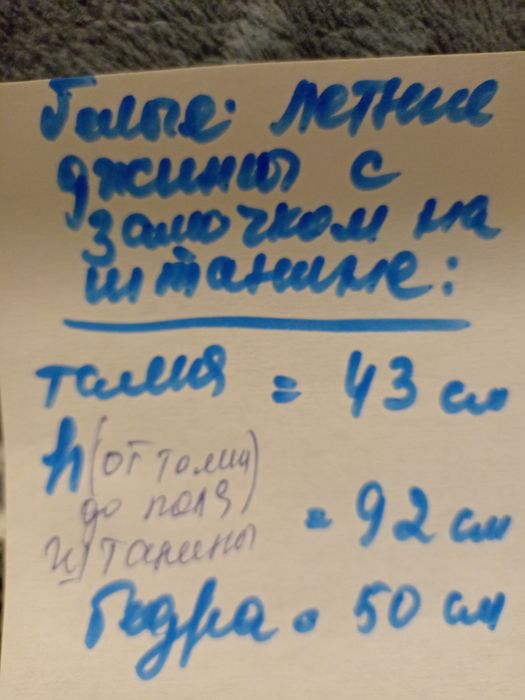 Галые: летние
джинсы с
замочком на
штанине:
талия = 43 см
h (от талии
до пола)
штанины = 92 см
бедра = 50 см